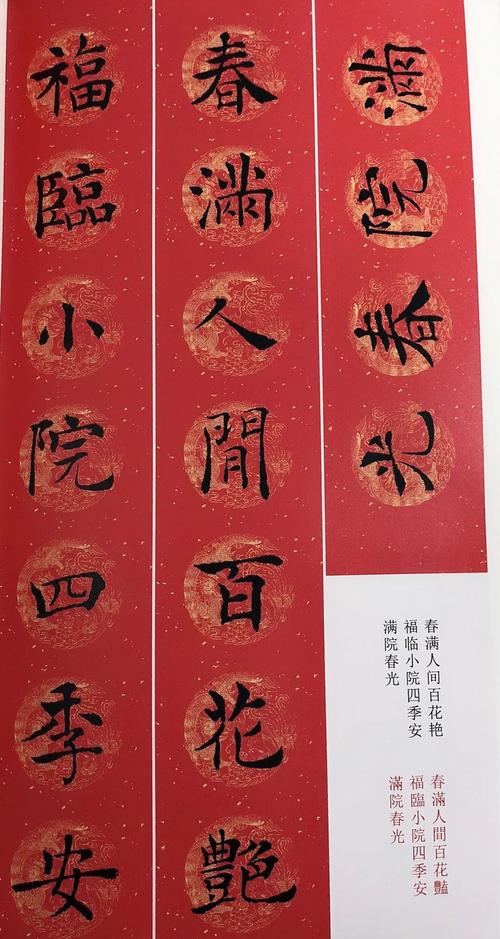 滿院春光
春滿人間百花艷
福臨小院四季安
春满人间百花艳
福临小院四季安
满院春光
春滿人間百花豔
福臨小院四季安
滿院春光